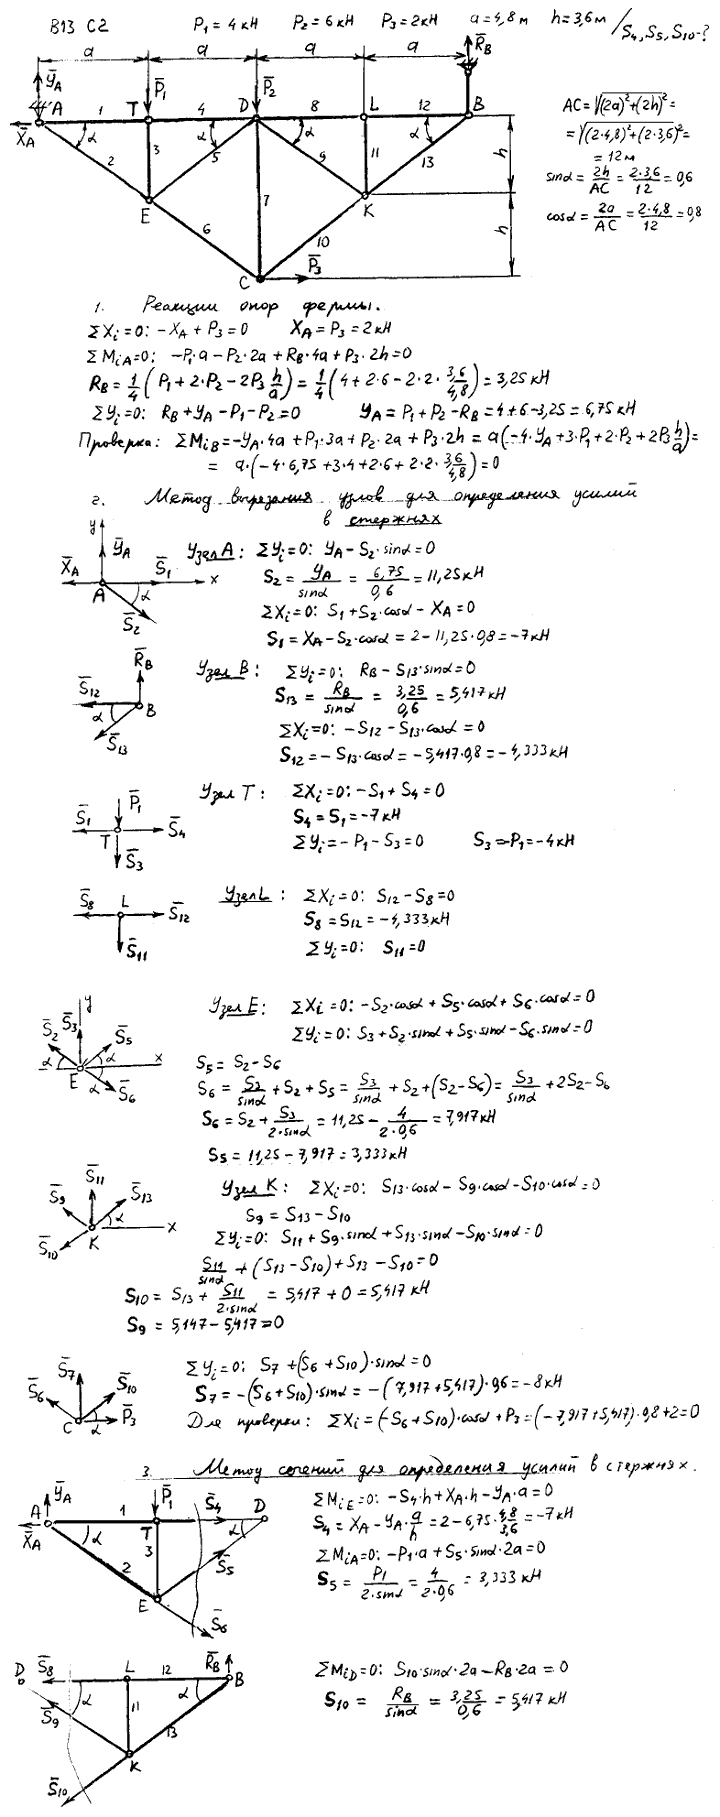 В13 С2 P₁ = 4 кН P₂ = 6 кН P₃ = 2 кН a = 4,8 м h = 3,6 м / S₄, S₅, S₁₀ - ?
a a a a R̄_B
Ȳ_A P̄₁ P̄₂
A 1 T 4 D 8 L 12 B
X̄_A α α α α
2 3 5 9 11 13 h
E 7 K
6 10 h
C P̄₃
AC = √((2a)²+(2h)²) =
= √((2·4,8)²+(2·3,6)²) =
= 12 м
sinα = 2h/AC = 2·3,6/12 = 0,6
cosα = 2a/AC = 2·4,8/12 = 0,8
1. Реакции опор фермы.
ΣXᵢ=0: -X_A + P₃ = 0 X_A = P₃ = 2 кН
ΣM_iA=0: -P₁·a - P₂·2a + R_B·4a + P₃·2h = 0
R_B = 1/4 (P₁ + 2·P₂ - 2P₃ h/a) = 1/4 (4 + 2·6 - 2·2· 3,6/4,8) = 3,25 кН
ΣYᵢ=0: R_B + Y_A - P₁ - P₂ = 0 Y_A = P₁ + P₂ - R_B = 4 + 6 - 3,25 = 6,75 кН
Проверка: ΣM_iB = -Y_A·4a + P₁·3a + P₂·2a + P₃·2h = a(-4·Y_A + 3·P₁ + 2·P₂ + 2P₃ h/a) =
= a·(-4·6,75 + 3·4 + 2·6 + 2·2· 3,6/4,8) = 0
2. Метод вырезания узлов для определения усилий
в стержнях
y Ȳ_A X̄_A S̄₁ x A α S̄₂
Узел A: ΣYᵢ=0: Y_A - S₂·sinα = 0
S₂ = Y_A/sinα = 6,75/0,6 = 11,25 кН
ΣXᵢ=0: S₁ + S₂·cosα - X_A = 0
S₁ = X_A - S₂·cosα = 2 - 11,25·0,8 = -7 кН
R̄_B S̄₁₂ α B S̄₁₃
Узел B: ΣYᵢ=0: R_B - S₁₃·sinα = 0
S₁₃ = R_B/sinα = 3,25/0,6 = 5,417 кН
ΣXᵢ=0: -S₁₂ - S₁₃·cosα = 0
S₁₂ = -S₁₃·cosα = -5,417·0,8 = -4,333 кН
P̄₁ S̄₁ T S̄₄ S̄₃
Узел T: ΣXᵢ=0: -S₁ + S₄ = 0
S₄ = S₁ = -7 кН
ΣYᵢ = -P₁ - S₃ = 0 S₃ = -P₁ = -4 кН
S̄₈ L S̄₁₂ S̄₁₁
Узел L: ΣXᵢ=0: S₁₂ - S₈ = 0
S₈ = S₁₂ = -4,333 кН
ΣYᵢ=0: S₁₁ = 0
y S̄₃ S̄₂ S̄₅ α α x E α S̄₆
Узел E: ΣXᵢ=0: -S₂·cosα + S₅·cosα + S₆·cosα = 0
ΣYᵢ=0: S₃ + S₂·sinα + S₅·sinα - S₆·sinα = 0
S₅ = S₂ - S₆
S₆ = S₃/sinα + S₂ + S₅ = S₃/sinα + S₂ + (S₂ - S₆) = S₃/sinα + 2S₂ - S₆
S₆ = S₂ + S₃/2·sinα = 11,25 - 4/2·0,6 = 7,917 кН
S₅ = 11,25 - 7,917 = 3,333 кН
S̄₁₁ S̄₉ S̄₁₃ α x K S̄₁₀
Узел K: ΣXᵢ=0: S₁₃·cosα - S₉·cosα - S₁₀·cosα = 0
S₉ = S₁₃ - S₁₀
ΣYᵢ=0: S₁₁ + S₉·sinα + S₁₃·sinα - S₁₀·sinα = 0
S₁₁/sinα + (S₁₃ - S₁₀) + S₁₃ - S₁₀ = 0
S₁₀ = S₁₃ + S₁₁/2·sinα = 5,417 + 0 = 5,417 кН
S₉ = 5,147 - 5,417 = 0
S̄₇ S̄₆ S̄₁₀ C α P̄₃
ΣYᵢ=0: S₇ + (S₆ + S₁₀)·sinα = 0
S₇ = -(S₆ + S₁₀)·sinα = -(7,917 + 5,417)·0,6 = -8 кН
Для проверки: ΣXᵢ = (-S₆ + S₁₀)·cosα + P₃ = (-7,917 + 5,417)·0,8 + 2 = 0
3. Метод сечений для определения усилий в стержнях.
Ȳ_A P̄₁ S̄₄
A 1 T D
X̄_A α α
2 3 S̄₅
E S̄₆
ΣM_iE=0: -S₄·h + X_A·h - Y_A·a = 0
S₄ = X_A - Y_A· a/h = 2 - 6,75· 4,8/3,6 = -7 кН
ΣM_iA=0: -P₁·a + S₅·sinα·2a = 0
S₅ = P₁/2·sinα = 4/2·0,6 = 3,333 кН
D S̄₈ L 12 R̄_B B
S̄₉ α 11 α 13
K
S̄₁₀
ΣM_iD=0: S₁₀·sinα·2a - R_B·2a = 0
S₁₀ = R_B/sinα = 3,25/0,6 = 5,417 кН